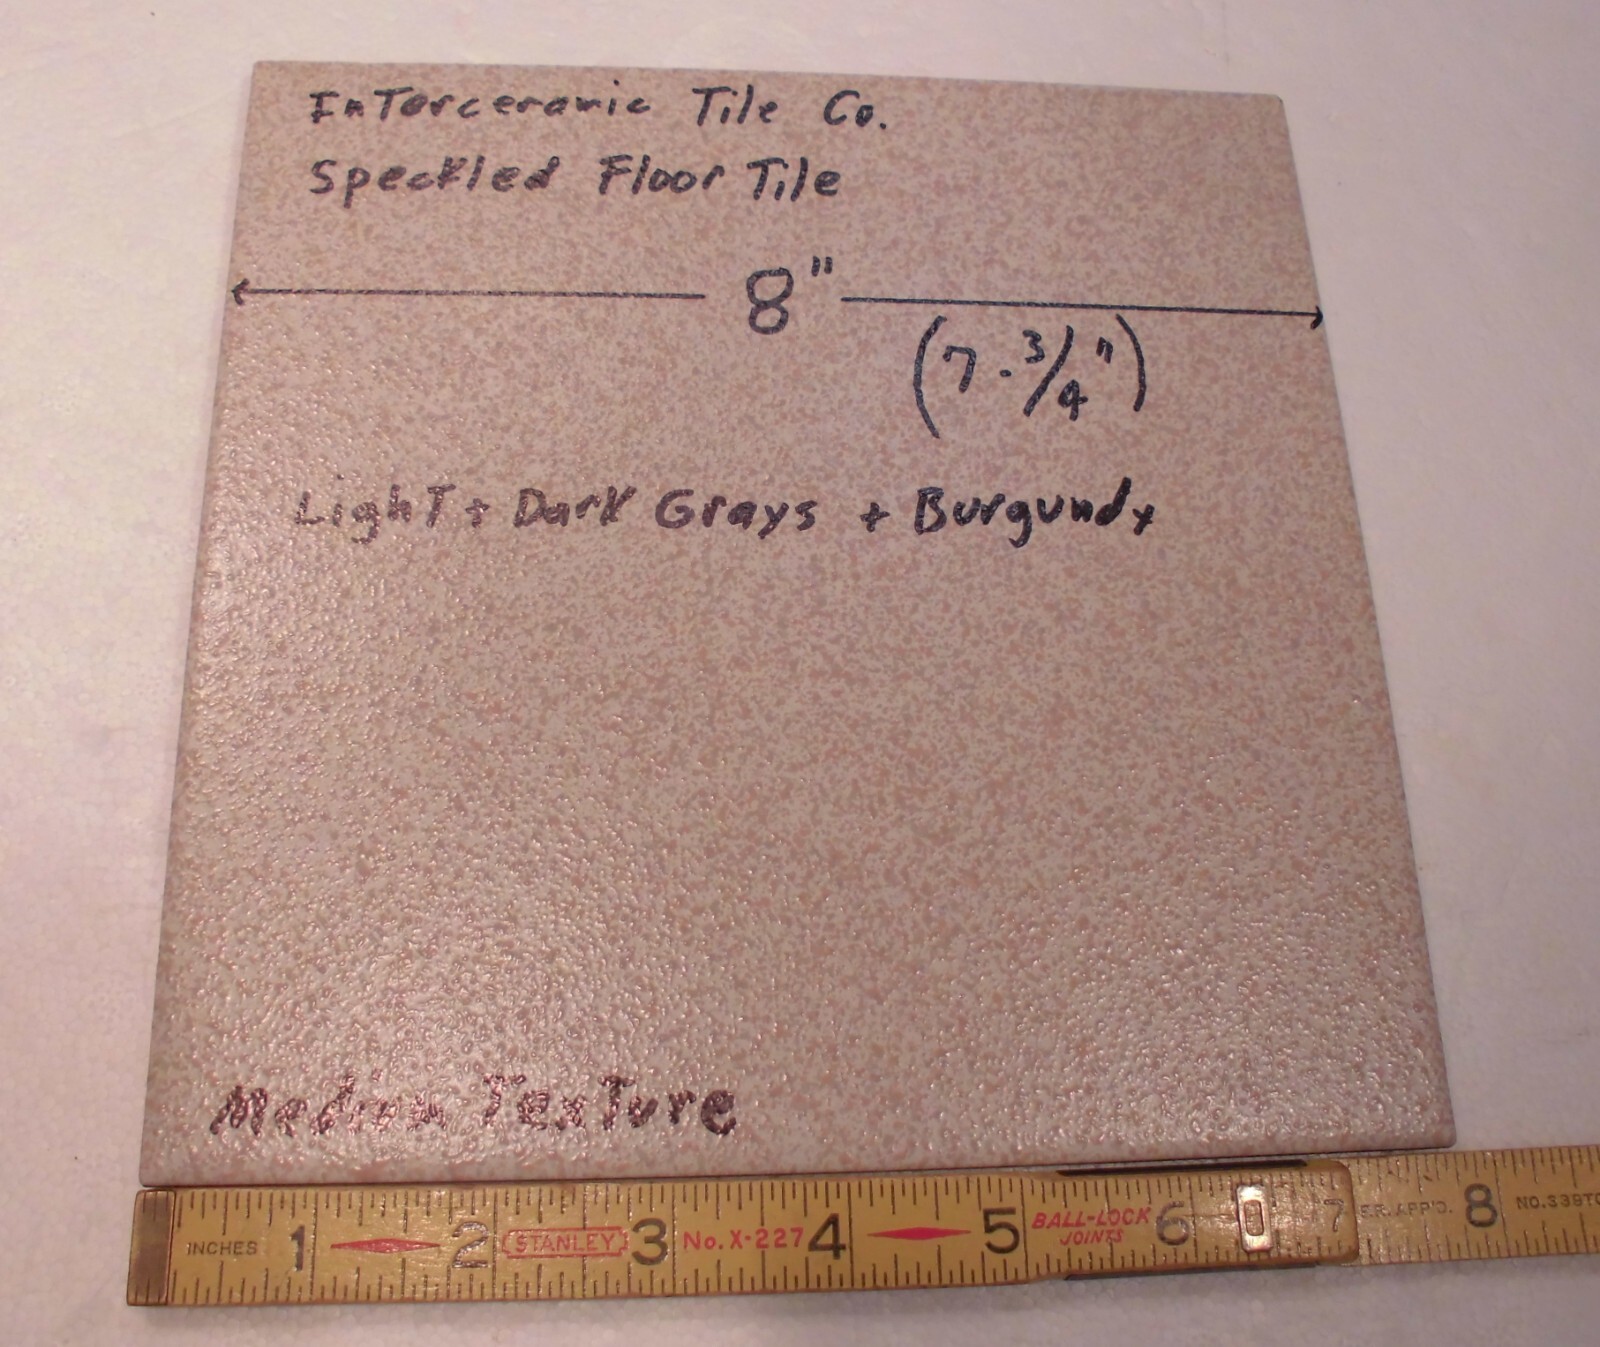 InTerceramic Tile Co.
Speckled Floor Tile
8"
(7-3/4")
LighT + Dark Grays + Burgundy
Medium TexTure
INCHES 1 2 STANLEY 3 No. X-227 4 5 BALL-LOCK JOINTS 6 7 8